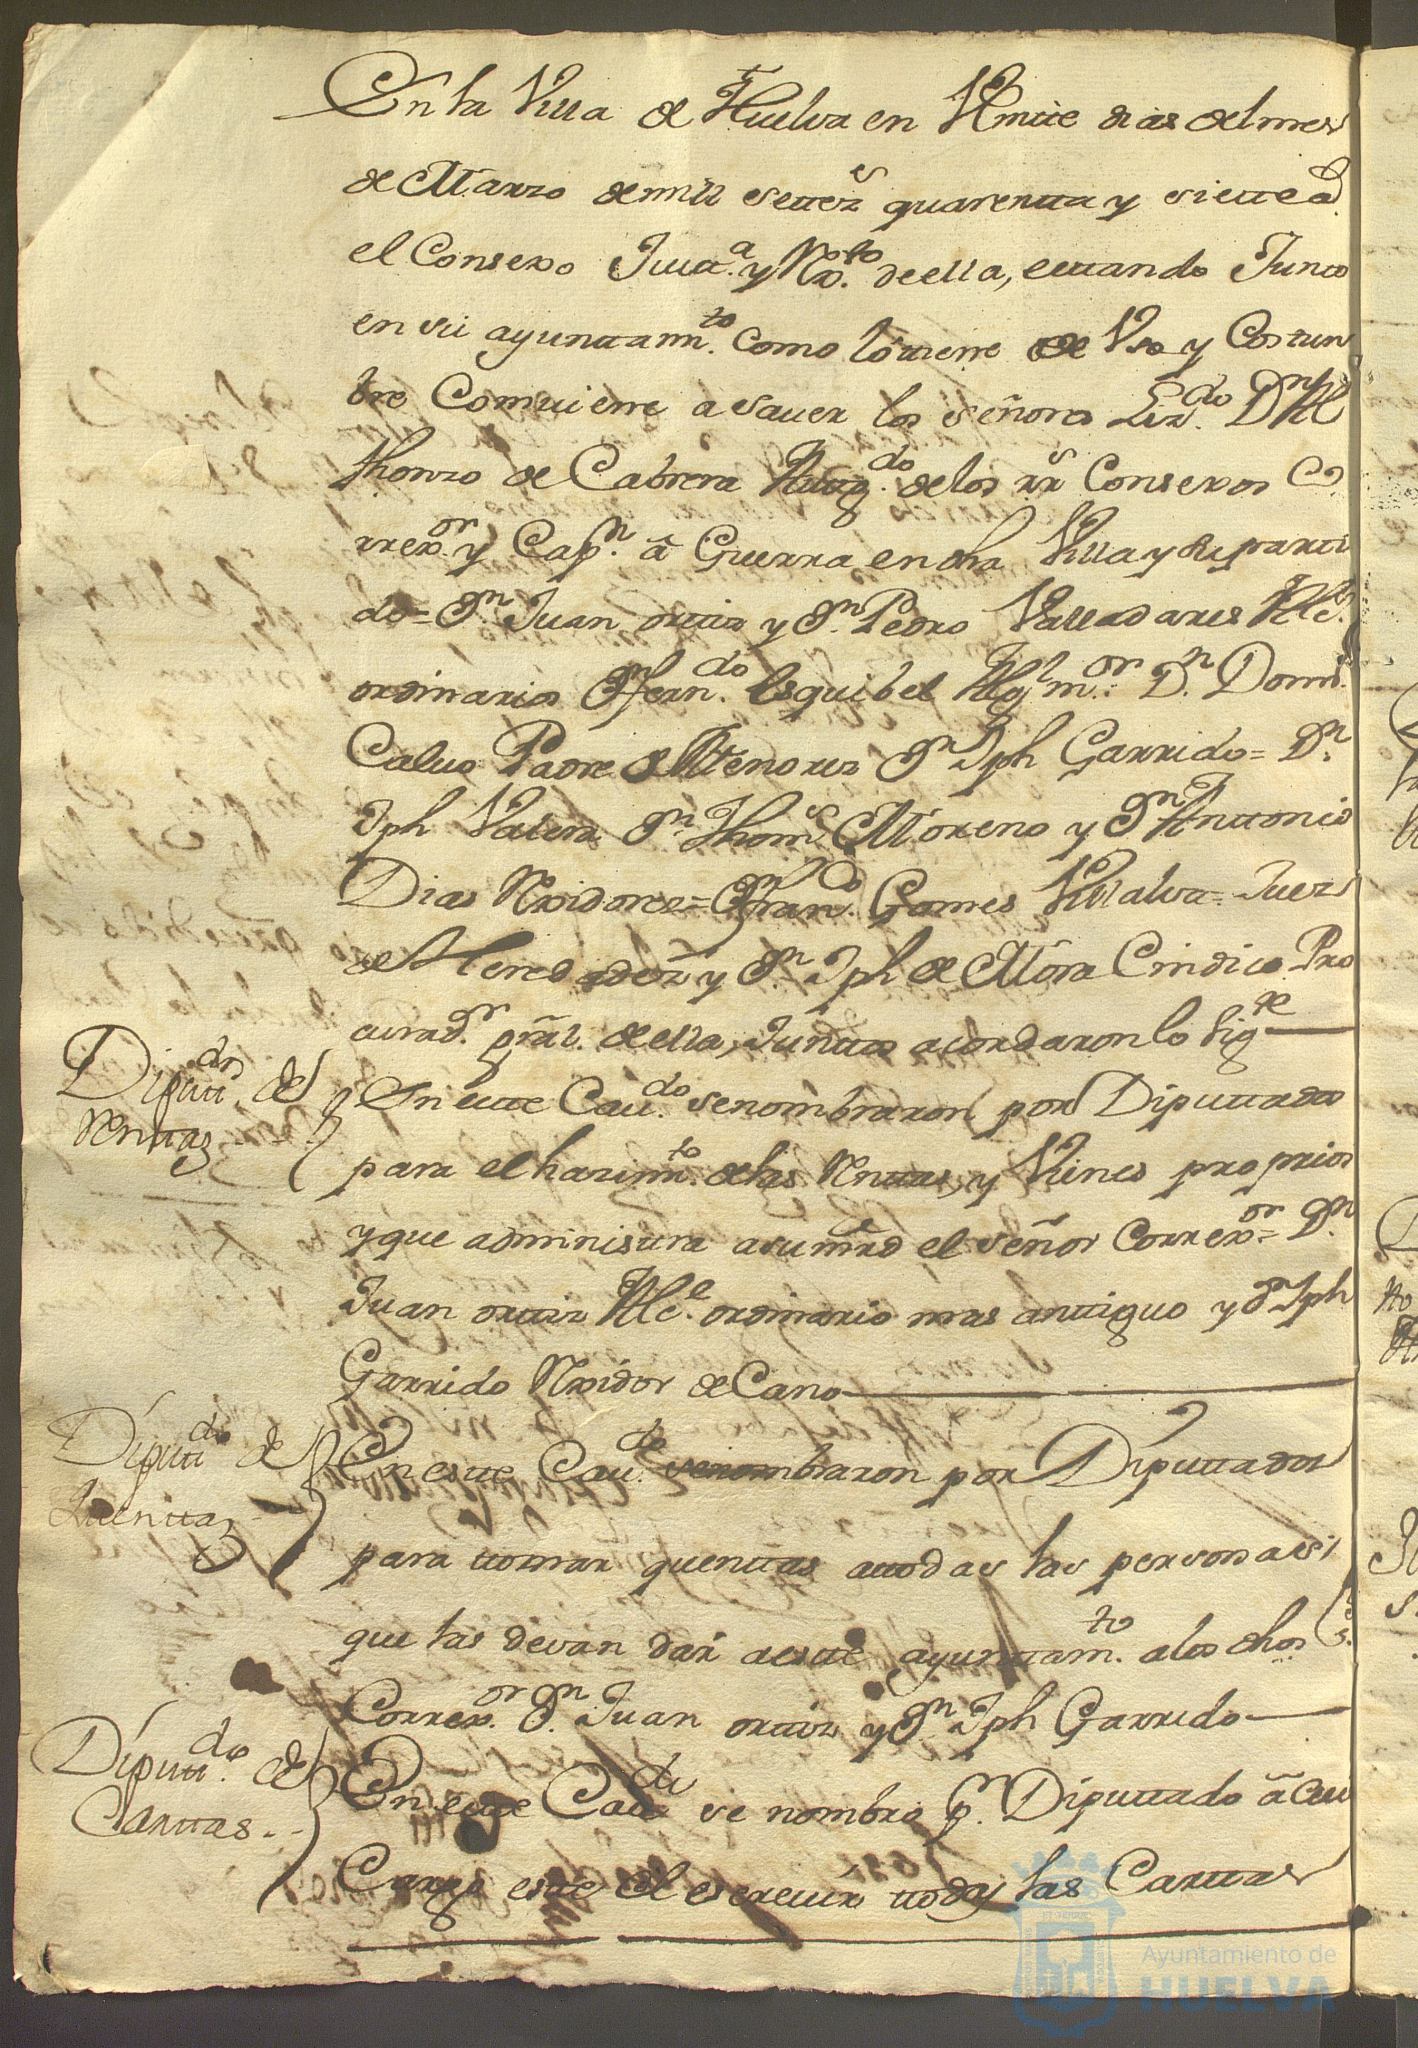 En la Villa de Huelva en Veinte dias del mes
de Marzo de mill settez.s quarentta y siette a.s
el Consexo Justt.a y Rx.to de ella, estando Junto
en su ayunttam.to como lo tiene de Vso y Costun
bre Comviene a saver los señores Lizd.o D.n Al
phonzo de Cabrera Avog.do de los rr.s Consexos Co
rrex.or y Cap.n â Guerra en dha Villa y su parti
do= D.n Juan orttiz y D.n Pedro Valladares Alc.s
ordinarios D.n Fern.do Esquibel Alg.l m.or D.n Dom.o
Calvo Padre de Menores D.n Jph Garrido= D.n
Jph Valera D.n Thom.s Moreno y D.n Anttonio
Dias Rxidores= D.n Fran.co Gomes Villalva= Juez
de Heredadez y D.n Jph de Mora Cindico Pro
curad.or gral. de ella, Junttos acordaron lo sig.te
Diputt.dos de
Renttas
En estte Cav.do se nombraron por Diputtados
para el hazim.to de las Renttas, y Vienes proprios
y que administra a su mrd el señor Correx.or= D.n
Juan orttiz Alc.e ordinario mas antiguo y D.n Jph
Garrido Rxidor de Cano
Diputt.dos de
Quenttas
En estte Cav.do se nombraron por Diputtados
para ttomar quenttas a ttodas las personas
que las devan dar a estte ayunttam.to a los dhos S.s
Correx.or D.n Juan orttiz y D.n Jph Garrido
Diputt.do de
Carttas
En estte Cav.do se nombro p.r Diputtado â cuio
Cargo estte el escrevir ttodas las Carttas
Ayuntamiento de
HUELVA